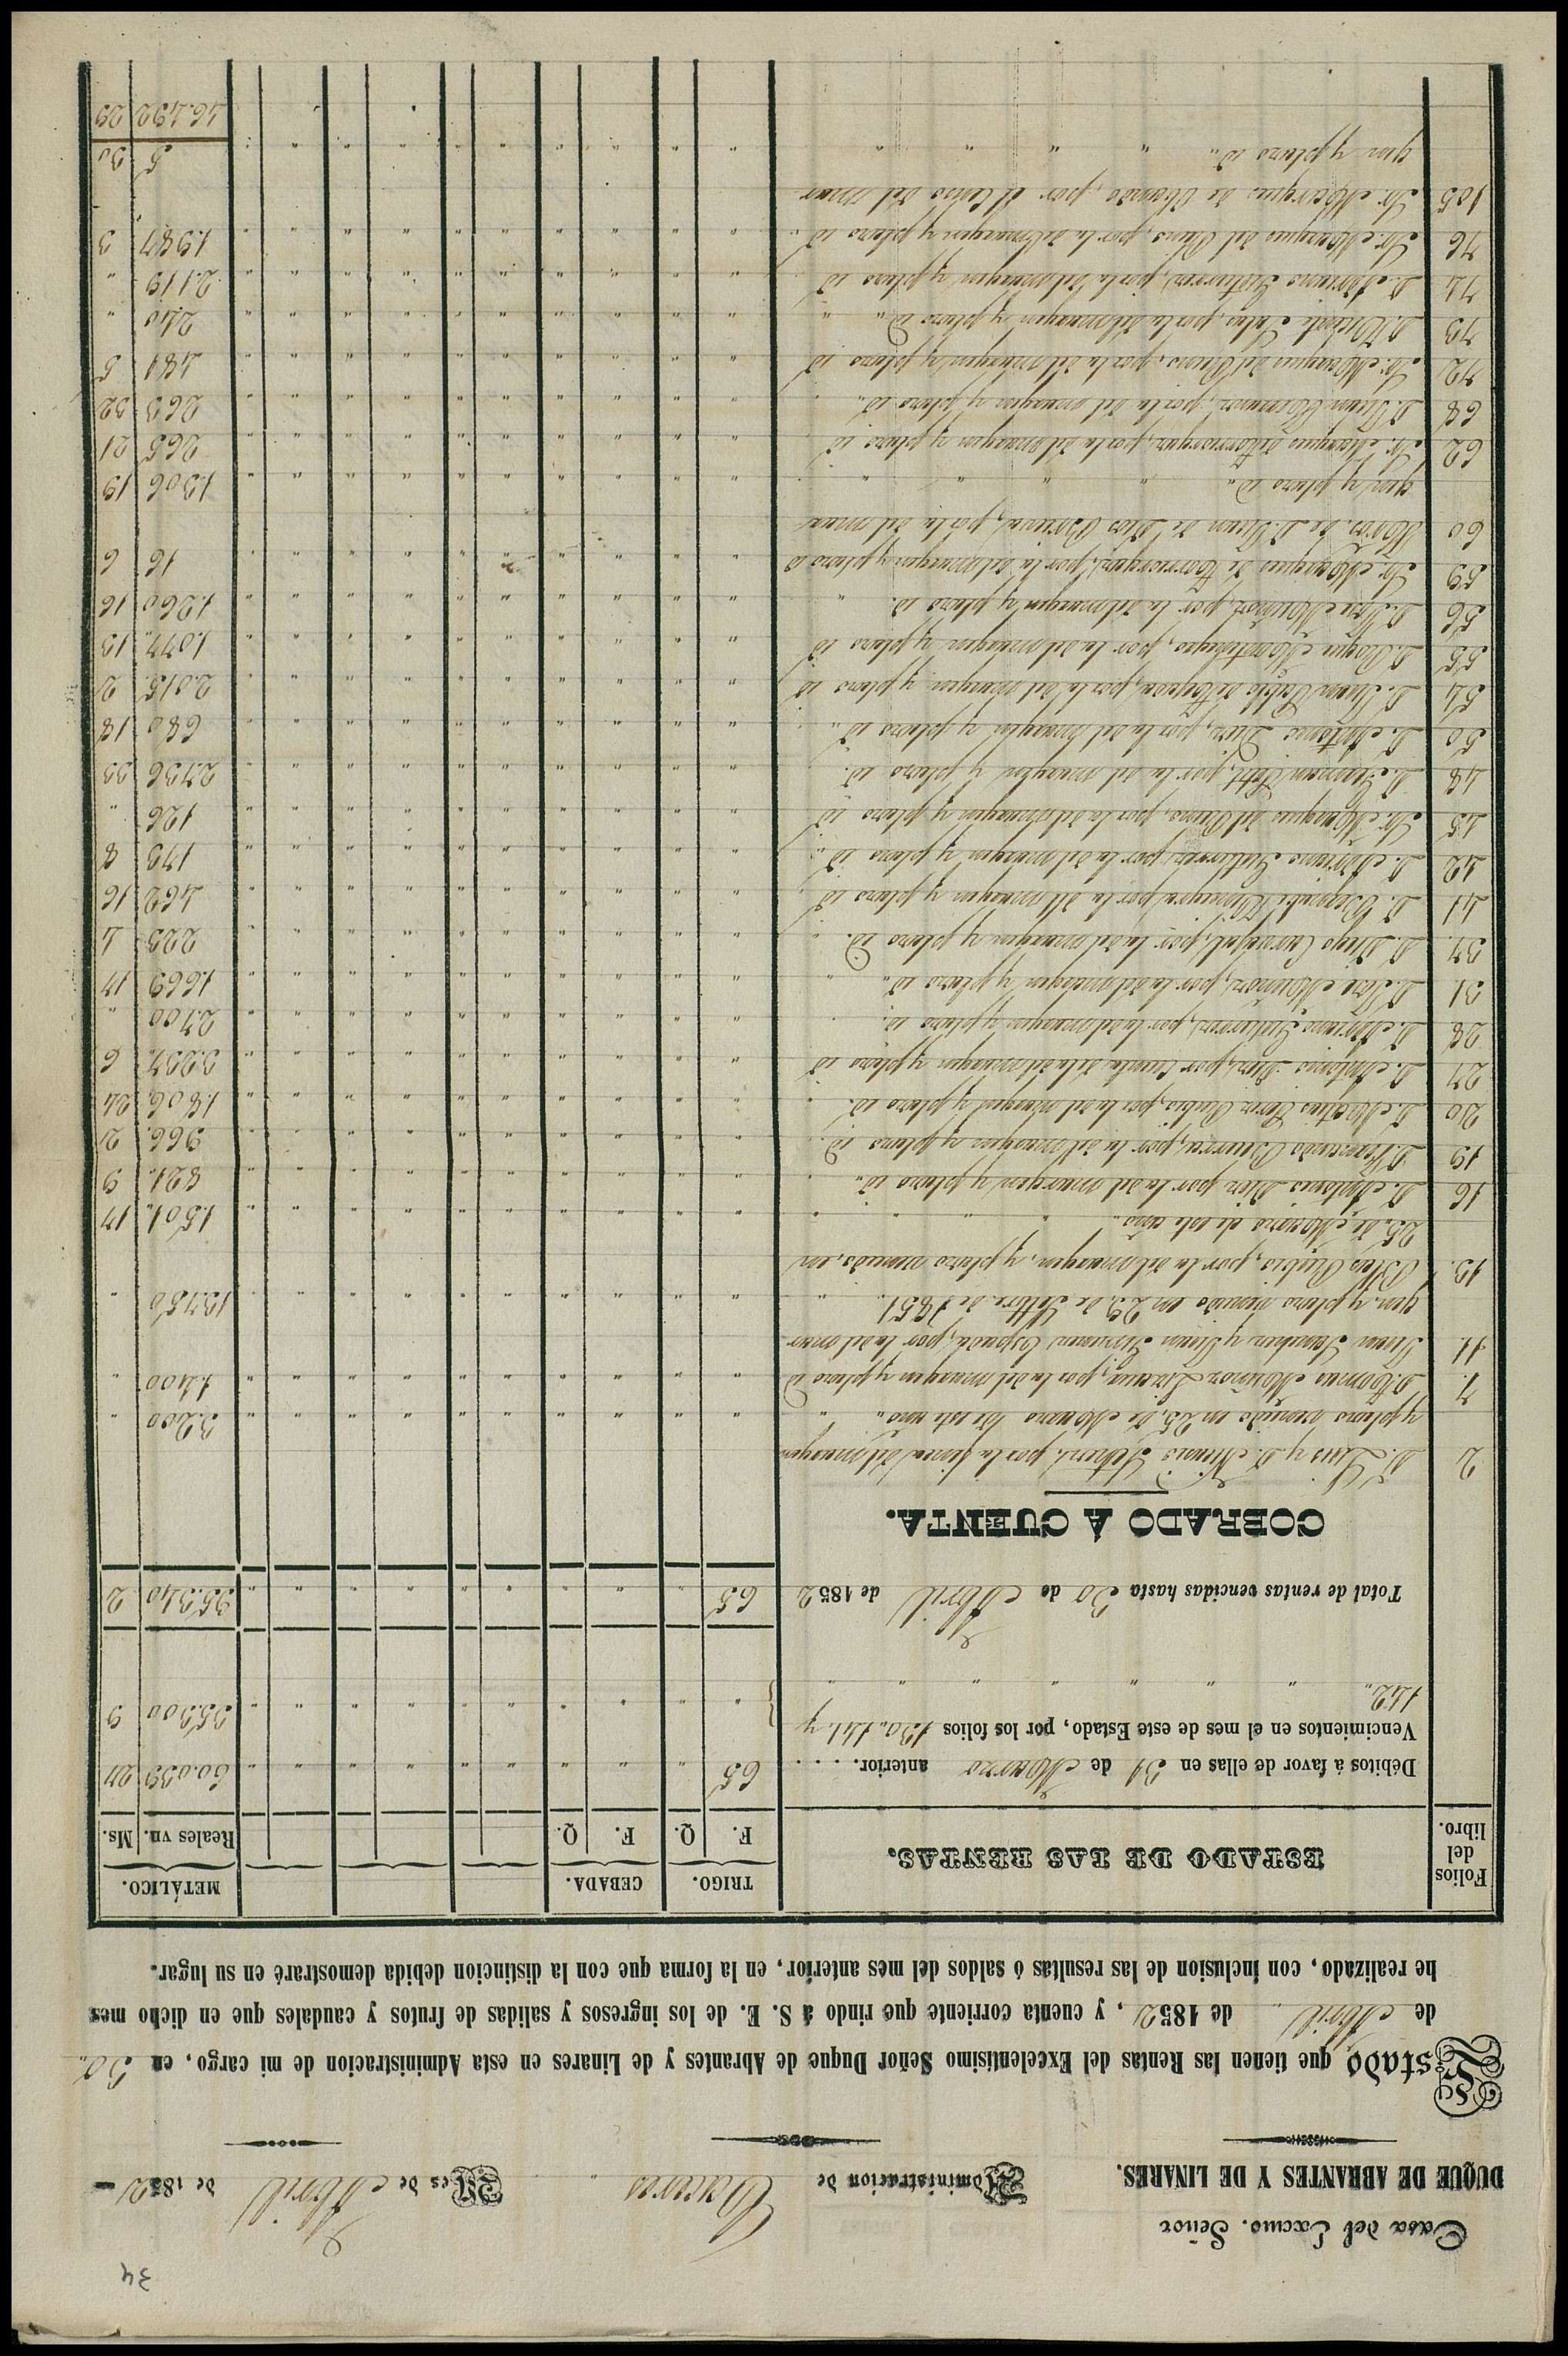 34
Casa del Excmo. Señor
DUQUE DE ABRANTES Y DE LINARES.
Administracion de Cáceres
Mes de Abril de 1852
Estado que tienen las Rentas del Excelentísimo Señor Duque de Abrantes y de Linares en esta Administracion de mi cargo, en 30
de Abril de 1852, y cuenta corriente que rindo á S. E. de los ingresos y salidas de frutos y caudales que en dicho mes
he realizado, con inclusion de las resultas ó saldos del mes anterior, en la forma que con la distincion debida demostraré en su lugar.
Folios del libro. ESTADO DE LAS RENTAS. TRIGO. CEBADA. METÁLICO.
F. Q. F. Q. Reales vn. Ms.
Débitos á favor de ellas en 31 de Marzo anterior. . . . 65 60.039 27
Vencimientos en el mes de este Estado, por los folios 130, 141, y
142. 35.300 9
Total de rentas vencidas hasta 30 de Abril de 1852 65 95.340 2
COBRADO Á CUENTA.
2 D. Luis y D. por la finca del margen
y plazo vencido en 25 de Marzo de este año 3.200 "
7 D. Tomas Muñoz por la del margen y plazo id 1.400 "
11. Juan Sanchez y Juan Espada, por la del mar
gen, y plazo vencido en 29 de Settre de 1851 13.750 "
13. Blas Rubio, por la del margen, y plazo vencido, en
25 de Marzo de este año 1.501 17
16 D. Antonio Diez por la del margen y plazo id 821 9
19 D. por la del margen y plazo id 966 2
20 D. Matias Rubio, por la del margen y plazo id. 1.806 24
27 D. Antonio Diez, por cuenta de la del margen y plazo id 3.237 6
28 D. Mariano Gutierrez, por la del margen y plazo id. 2.700 "
31 D. José Muñoz, por la del margen y plazo id. 1.669 17
37 D. Diego Carvajal, por la del margen y plazo id. 223 4
41 D. por la del margen y plazo id 462 16
42 D. Mariano Gutierrez, por la del margen y plazo id. 179 8
45 Sr. Marques del Reino, por la del margen y plazo id 126 "
48 D. por la del margen y plazo id. 2.736 33
50 D. Antonio Diez, por la del margen y plazo id. 680 18
54 D. Juan Pablo por la del margen y plazo id 2.015 2
55 D. Roque por la del margen y plazo id 1.077 13
56 D. José Muñoz, por la del margen y plazo id. 1.260 16
59 Sr. Marques de Torreorgaz, por la del margen y plazo id 16 6
60 de D. Juan de Dios por la del mar
gen y plazo id. 1.306 19
62 Sr. Marques de Torreorgaz, por la del margen y plazo id 265 21
68 D. Juan por la del margen y plazo id. 263 32
72 Sr. Marques del Reino, por la del margen y plazo id 481 5
73 D. Vicente por la del margen y plazo id. 240 "
74 D. Mariano Gutierrez, por la del margen y plazo id 2.119 "
76 Sr. Marques del Reino, por la del margen y plazo id. 1.987 3
105 Sr. Marques de por el Censo del mar
gen y plazo id. 5 30
46.492 29